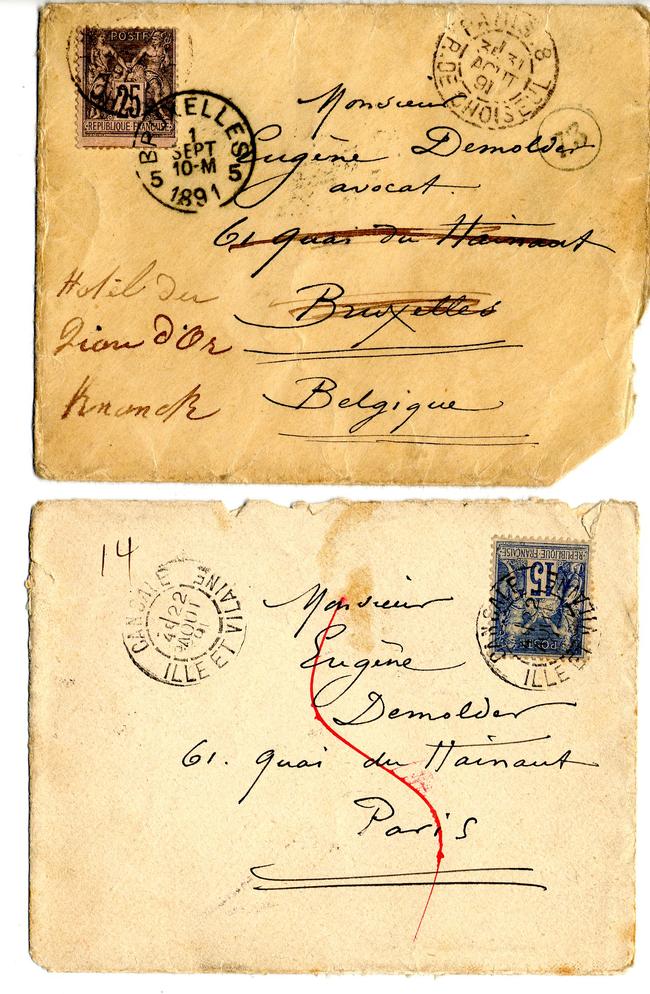 POSTE
25
REPUBLIQUE FRANÇAISE
BRUXELLES
1
SEPT
10-M
5 5
1891
PARIS 8
3E 31
AOUT
91
R. DE CHOISEUL
13
Monsieur
Eugène Demolder
avocat.
61 quai du Hainaut
Bruxelles
Belgique
Hotel du
Lion d'Or
14
CANCALE
4E 22
AOUT
91
ILLE ET VILAINE
REPUBLIQUE FRANÇAISE
15
CANCALE
ILLE ET VILAINE
Monsieur
Eugène
Demolder
61. quai du Hainaut
Paris